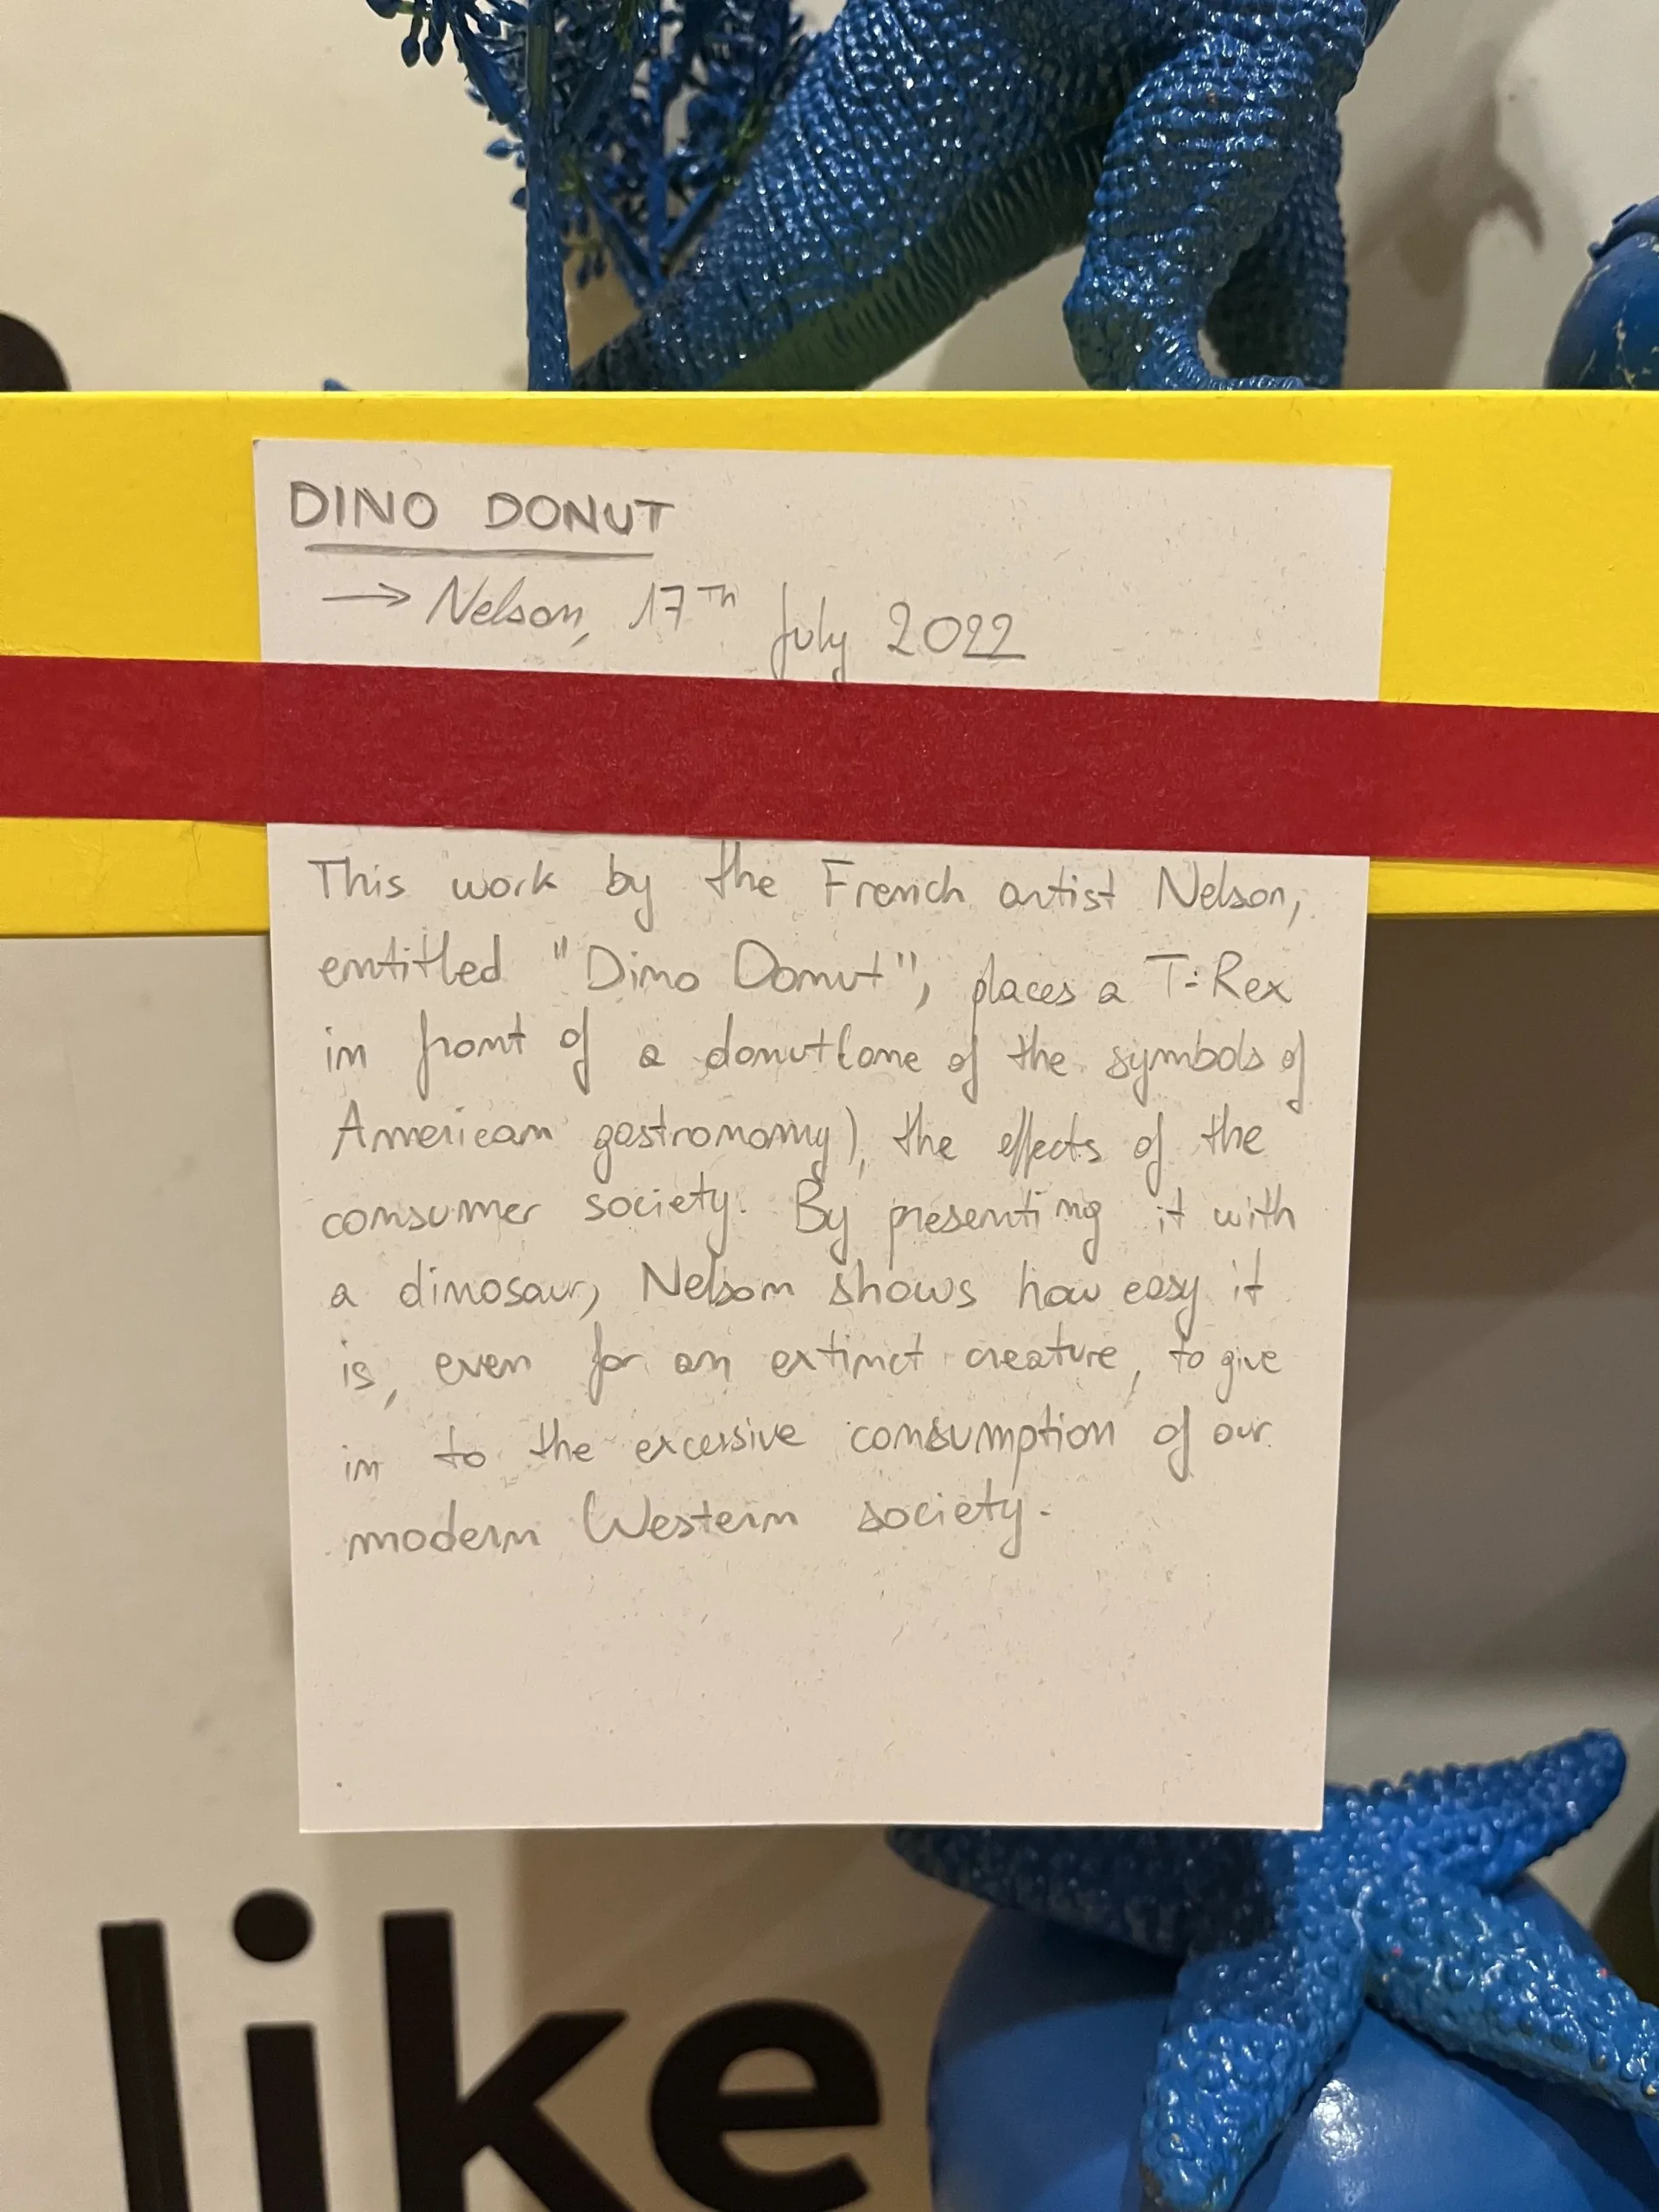 DINO DONUT
→ Nelson, 17Th July 2022
This work by the French artist Nelson,
entitled "Dino Donut", places a T-Rex
in front of a donut (one of the symbols of
American gastronomy), the effects of the
consumer society. By presenting it with
a dinosaur, Nelson shows how easy it
is, even for an extinct creature, to give
in to the excessive consumption of our
modern Western society.
like